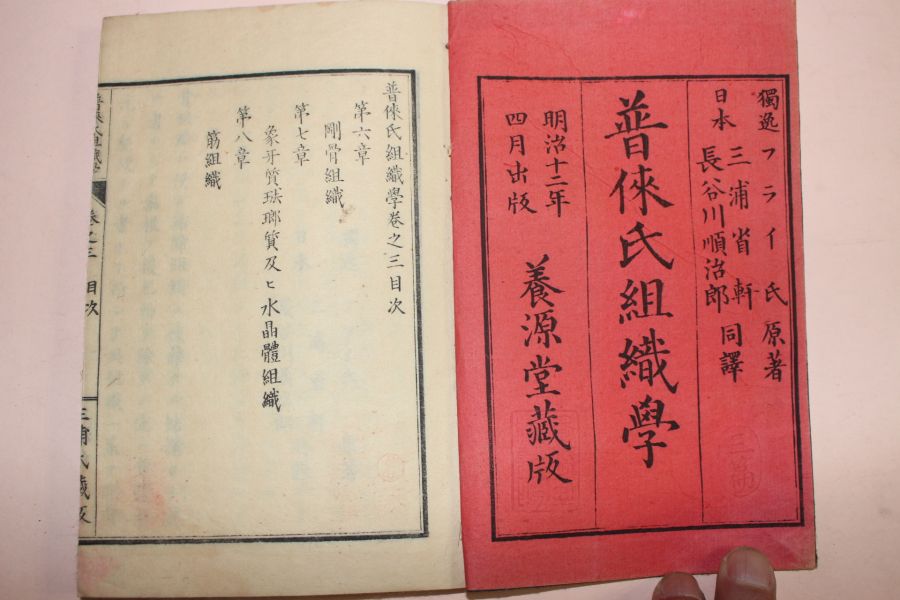 獨逸 フライ氏 原著
日本 三浦省軒
長谷川順治郎 同譯
普倈氏組織學
明治十二年
四月出版
養源堂藏版
普倈氏組織學卷之三目次
第六章
剛骨組織
第七章
象牙質琺瑯質及ヒ水晶體組織
第八章
筋組織
卷之三 目次
三浦氏藏版